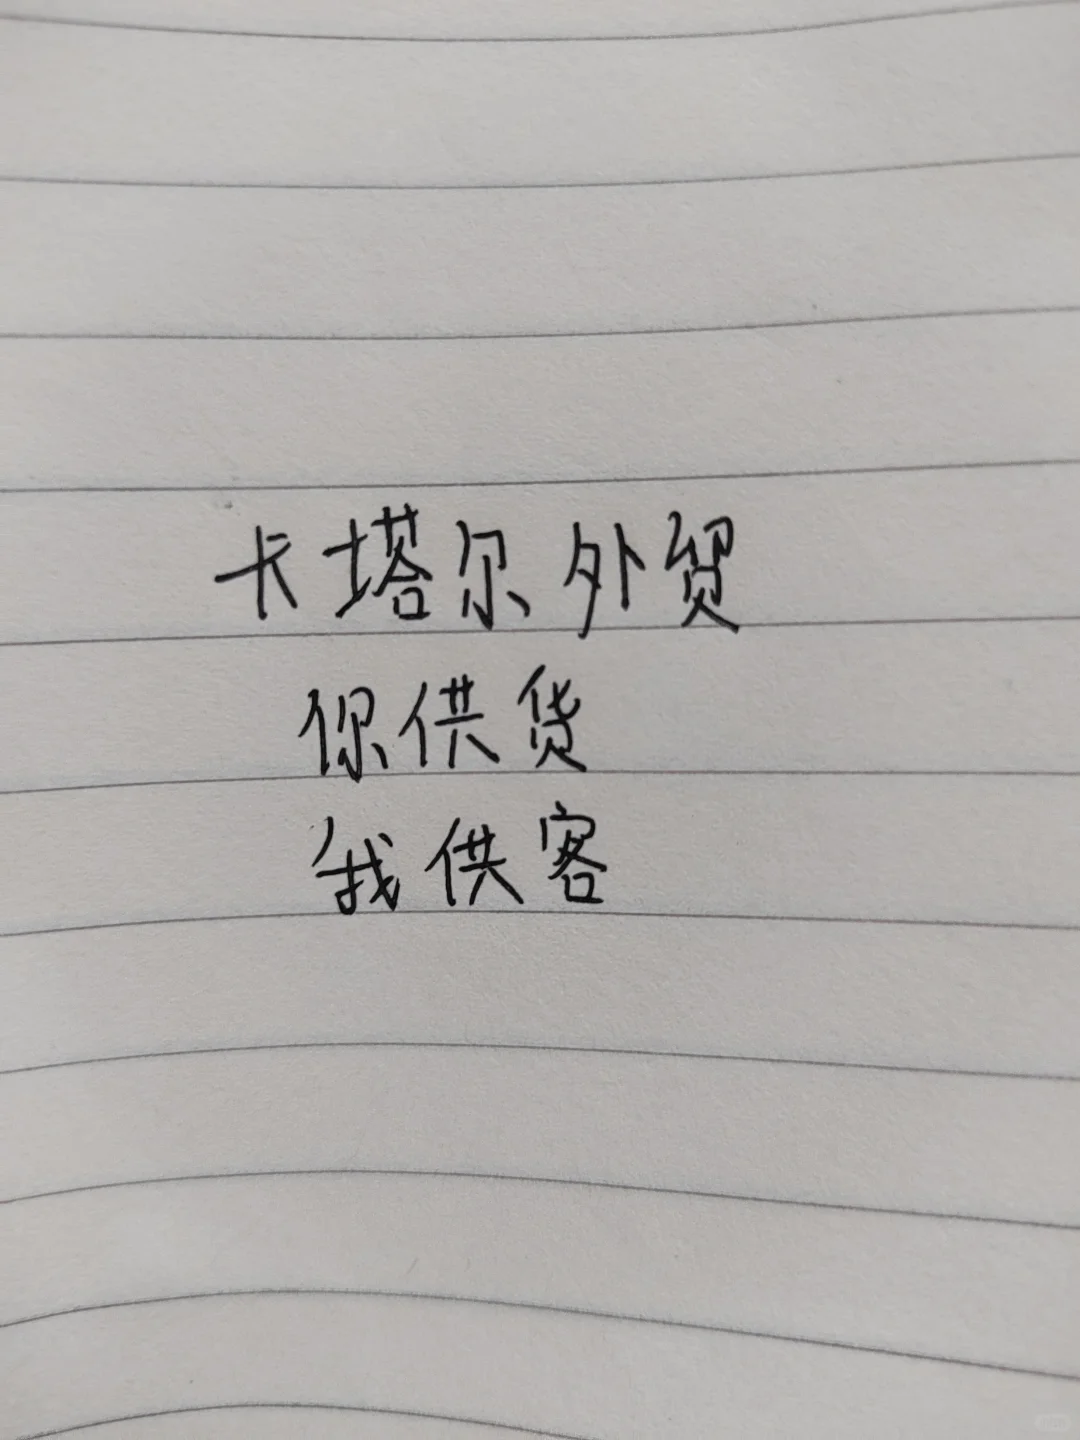 卡塔尔外贸
你供货
我供客